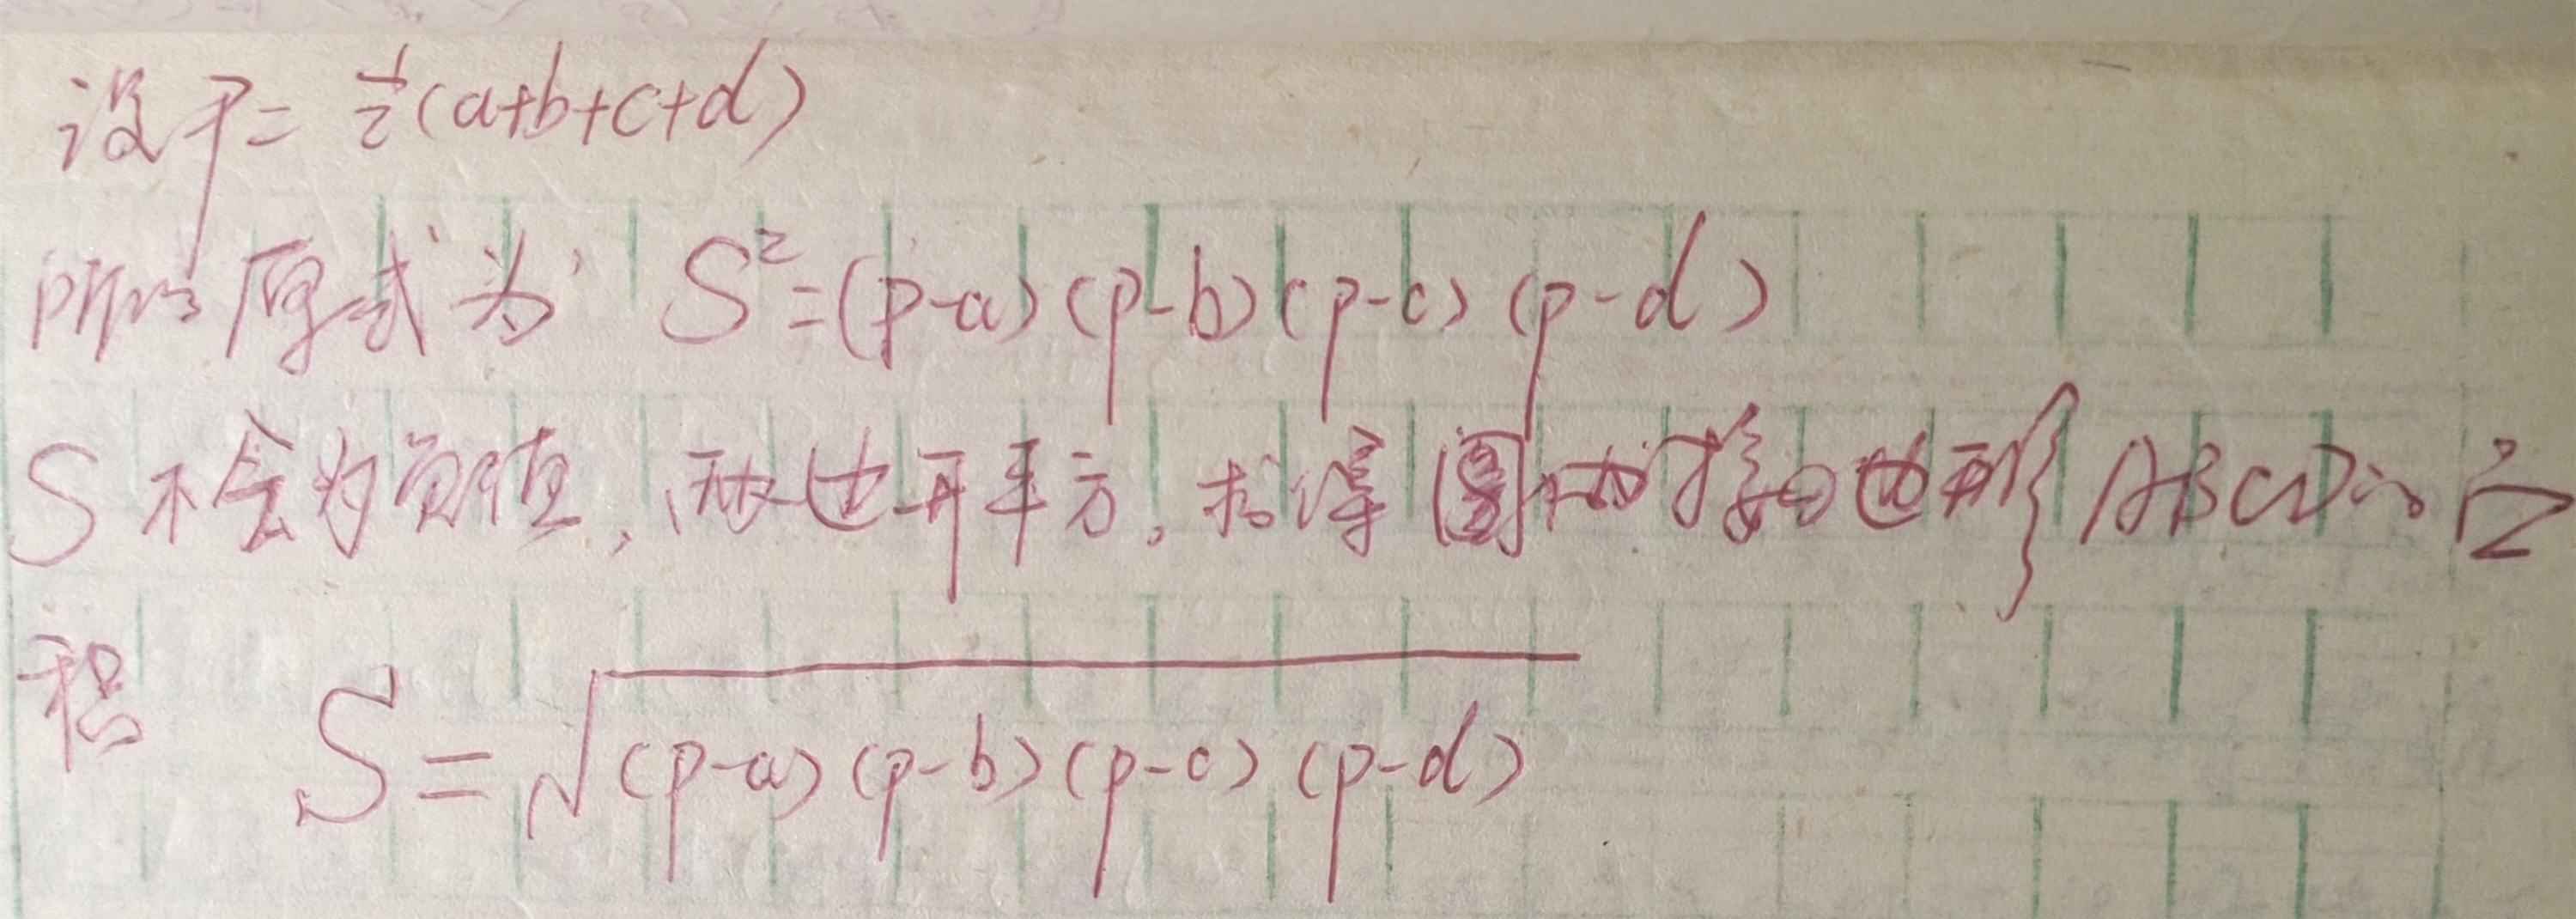 设p=½(a+b+c+d)
所以原式为 S²=(p-a)(p-b)(p-c)(p-d)
S不会为负值,两边开平方,求得圆内接四边形ABCD的面
积 S=√(p-a)(p-b)(p-c)(p-d)